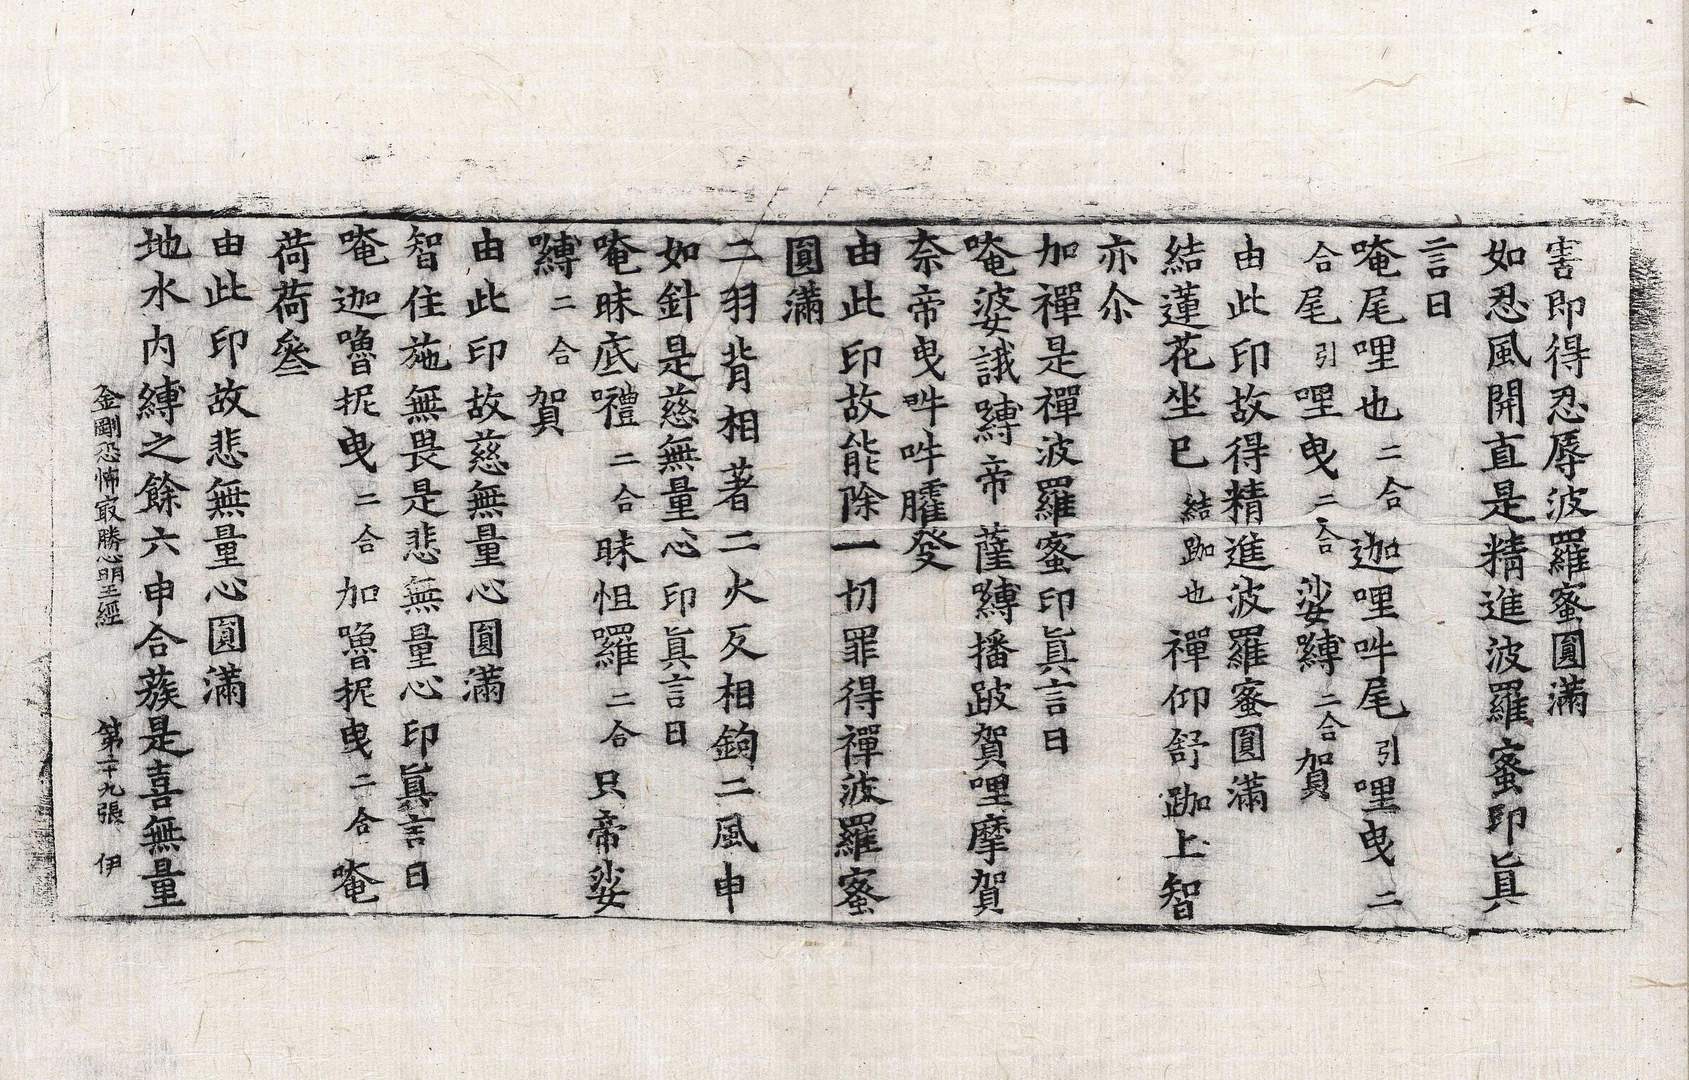 害即得忍辱波羅蜜圓滿
如忍風開直是精進波羅蜜印眞
言曰
唵尾哩也二合迦哩吽尾引哩曳二
合尾引哩曳二合娑嚩二合賀
由此印故得精進波羅蜜圓滿
結蓮花坐已結跏也禪仰舒跏上智
亦尒
加禪是禪波羅蜜印眞言曰
唵婆誐嚩帝薩嚩播跛賀哩摩賀
奈帝曳吽吽吽癹
由此印故能除一切罪得禪波羅蜜
圓滿
二羽背相著二火反相鉤二風申
如針是慈無量心印眞言曰
唵昧底嚟二合昧怛羅二合只帝娑
嚩二合賀
由此印故慈無量心圓滿
智住施無畏是悲無量心印眞言曰
唵迦嚕抳曳二合加嚕抳曳二合唵
荷荷叅
由此印故悲無量心圓滿
地水内縛之餘六申合蔟是喜無量
金剛恐怖冣勝心明王經 第二十九張 伊